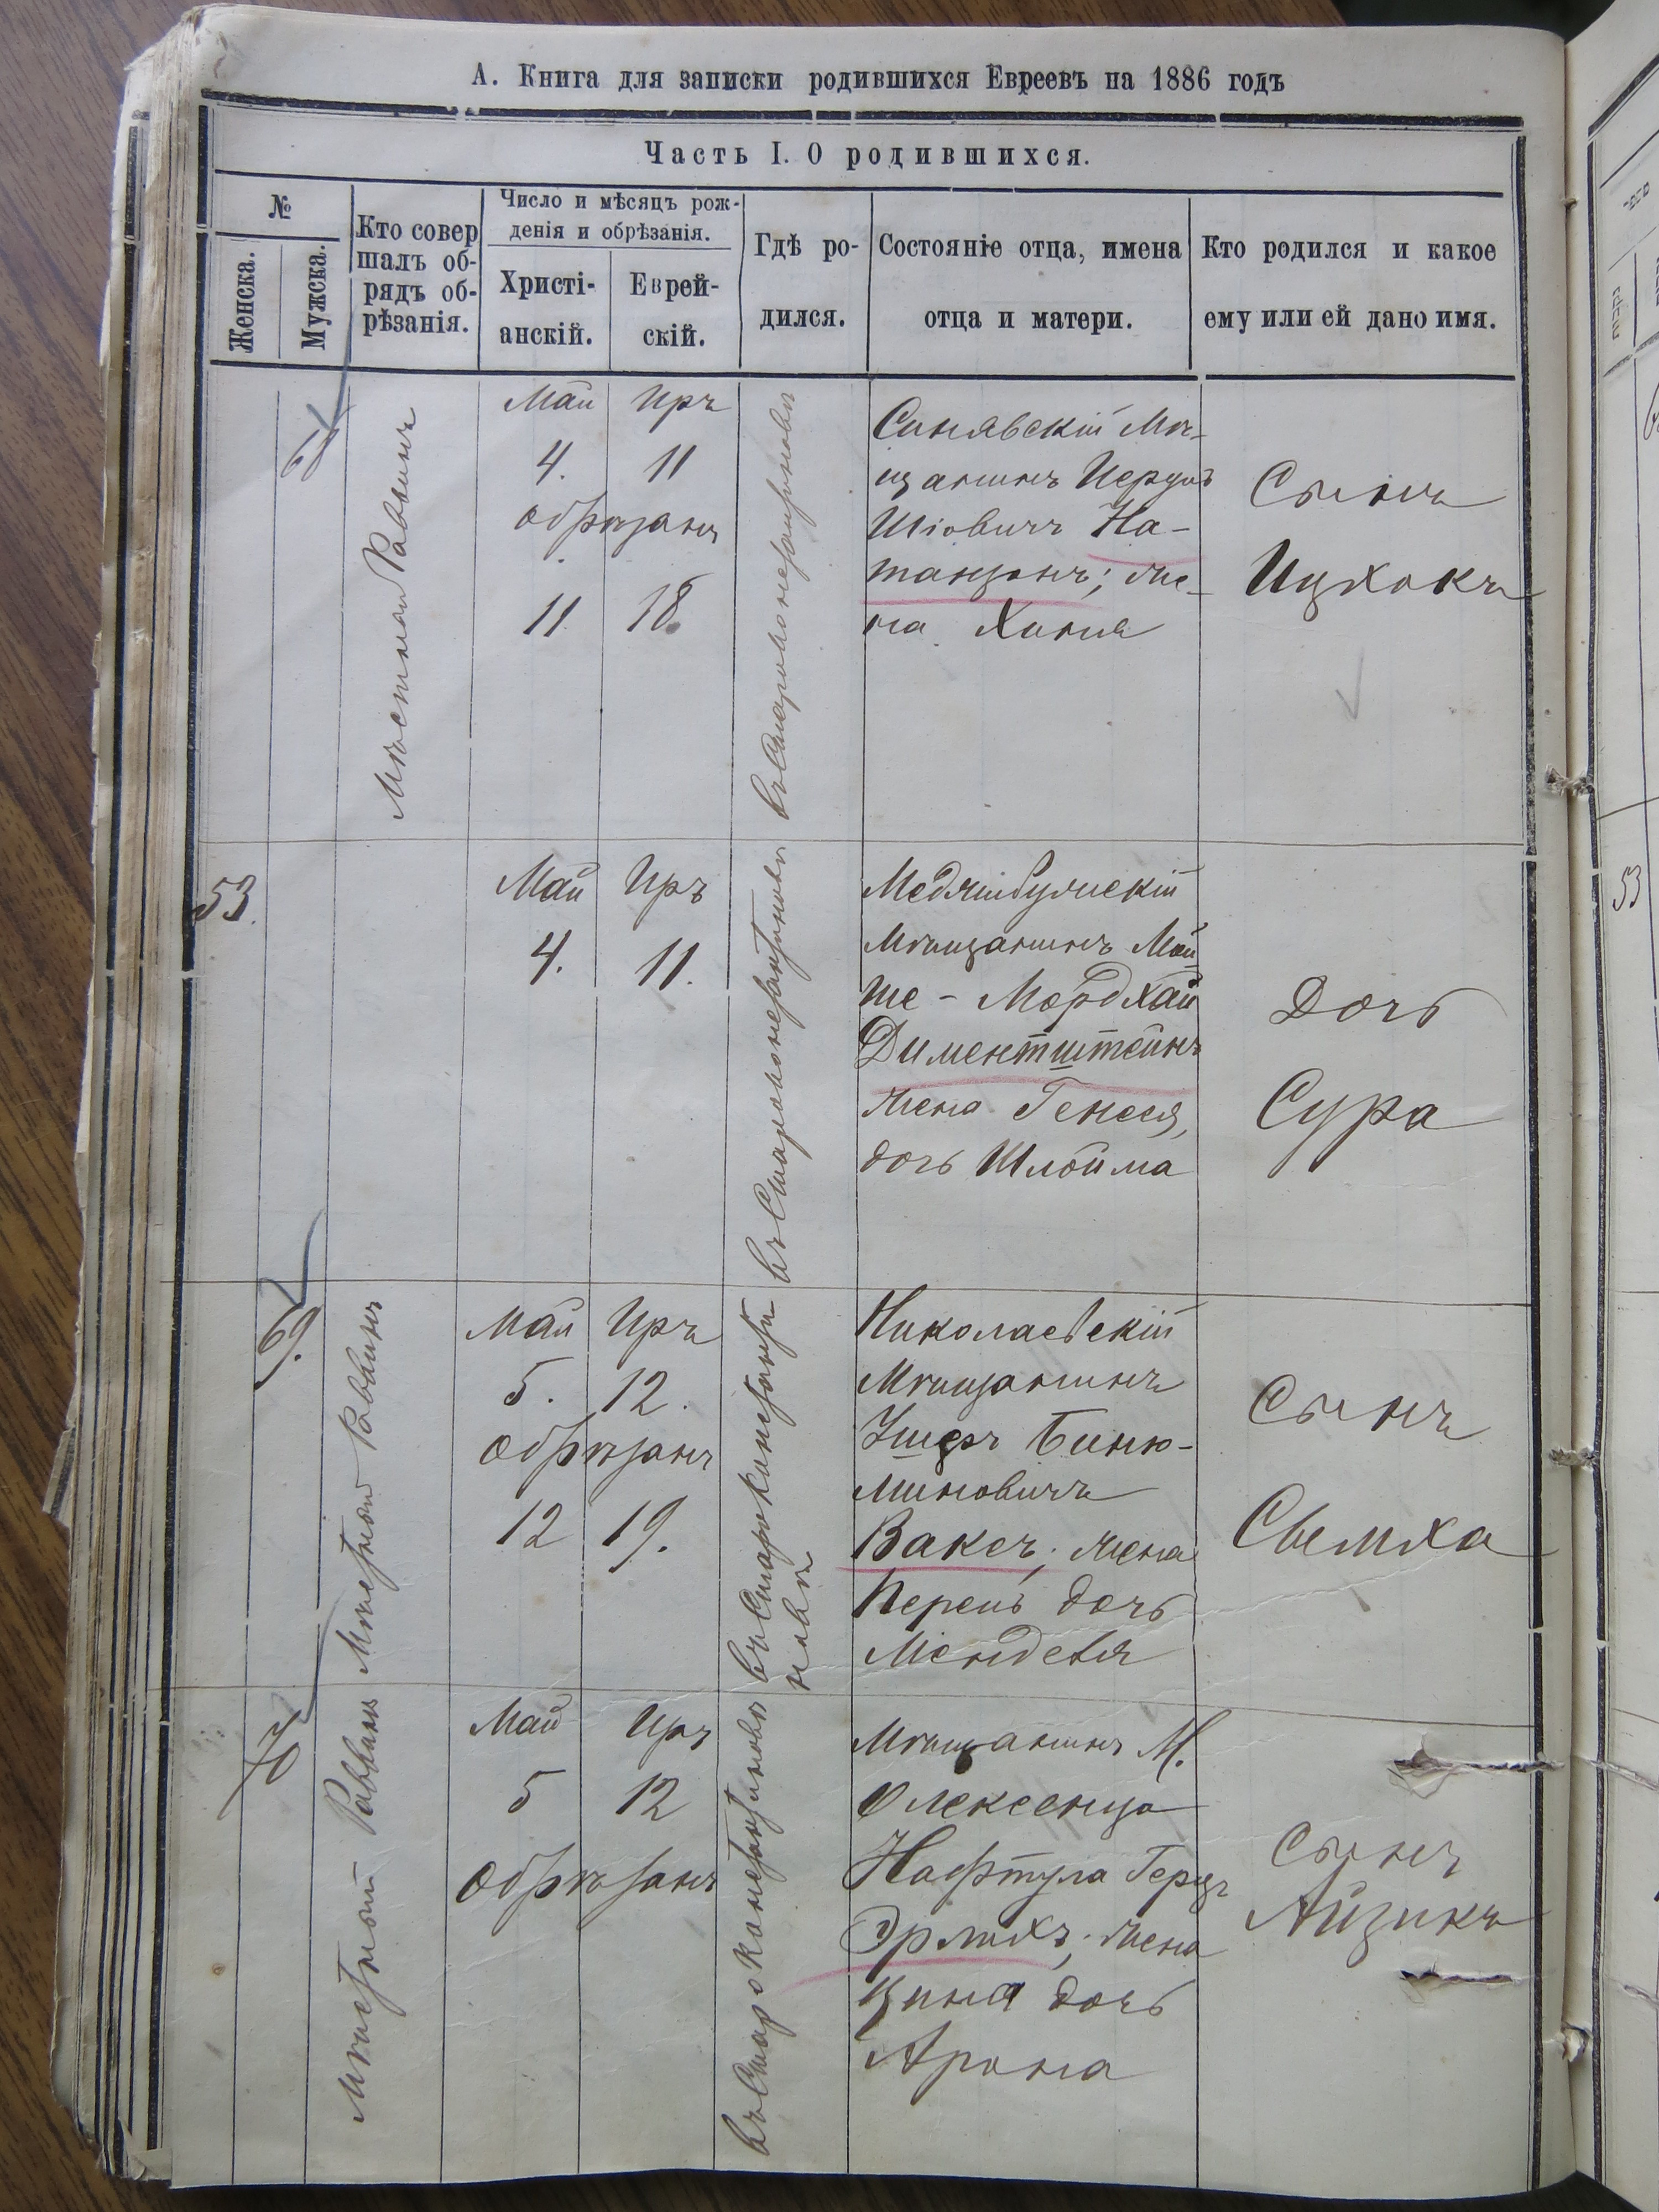 А. Книга для записки родившихся Евреевъ на 1886 годъ
Часть I. О родившихся.
№
Женска.
Мужска.
Кто совер
шалъ об-
рядъ об-
рѣзанія.
Число и мѣсяцъ рож-
денія и обрѣзанія.
Христі-
анскій.
Еврей-
скій.
Гдѣ ро-
дился.
Состояніе отца, имена
отца и матери.
Кто родился и какое
ему или ей дано имя.
68
Мѣстной Раввинъ
Май Иръ
4. 11
обрѣзанъ
11 18.
въ Староконстантиновѣ
Синявскій Мѣ-
щанинъ
Шіовичъ На-
танзонъ; же-
на Ханна
Сынъ
Ицхокъ
53.
Май Иръ
4. 11.
въ Староконстантиновѣ
Меджибужскій
Мѣщанинъ Мой
ше - Мордхай
Диментштейнъ
жена Генеся,
дочь Шлойма
Дочь
Сура
69.
Мѣстной Раввинъ
Май Иръ
5. 12.
обрѣзанъ
12 19.
въ Староконстанти
новѣ
Николаевскій
Мѣщанинъ
Ушеръ Биню-
миновичъ
Ваксъ; жена
Перель дочь
Менделя
Сынъ
Сьемха
70
Мѣстной Раввинъ
Май Иръ
5 12
обрѣзанъ
въ Староконстантиновѣ
Мѣщанинъ М.
Олексенца
Нафтула Герцъ
Эрлихъ; жена
Цина дочь
Арона
Сынъ
Айзикъ
53